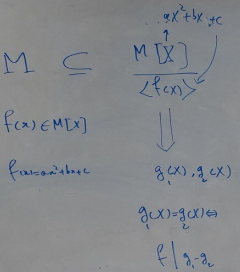 ax²+bx+c
M ⊆ M[X]
<f(x)>
f(x) ∈ M[X]
f(x)=ax²+bx+c
g₁(x), g₂(x)
g₁(x)=g₂(x) ⇔
f | g₁-g₂